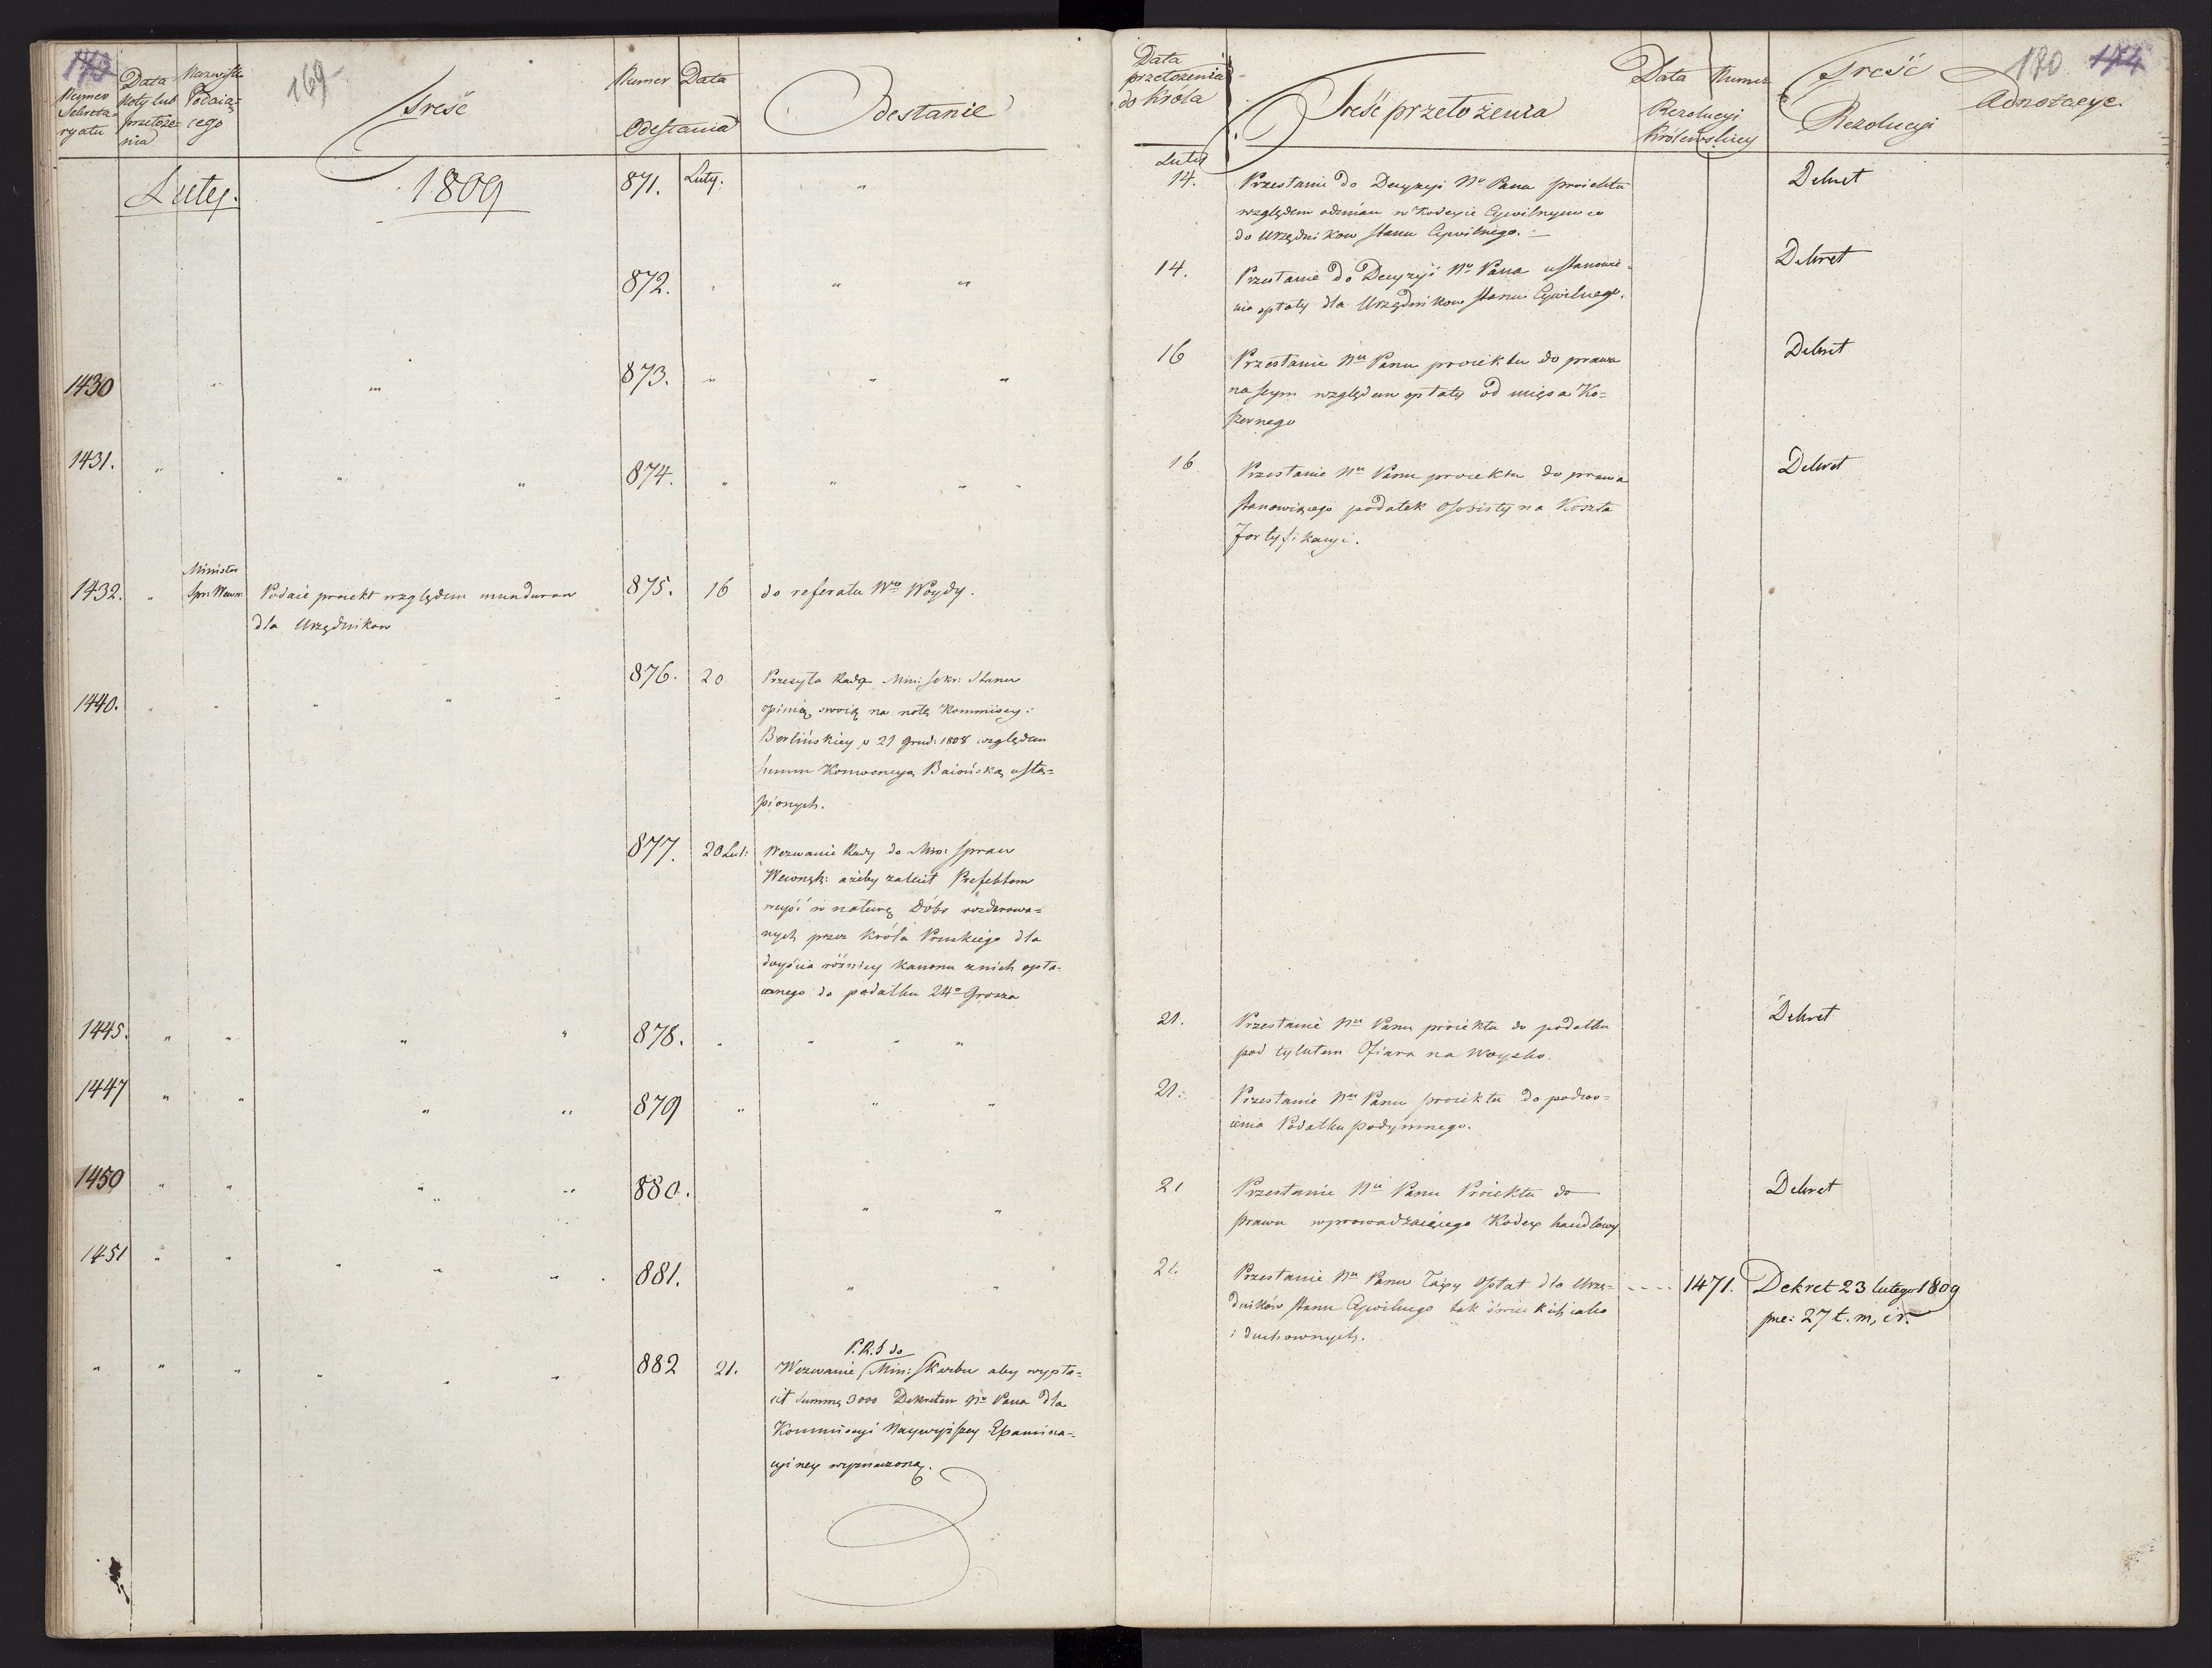 173
169
Numer
Sekreta-
ryatu
Data
Noty lub
przełoże-
nia
Nazwisko
Podaią-
cego
Treść
Numer Data
Odesłania
Odesłanie
Lutego.
1809
871. Luty. "
872. " "
1430 " " 873. " " "
1431. " " " 874. " " "
1432. " Minister
Spr: Wewn:
Podaie proiekt względem mundurow
dla Urzędnikow
875. 16 do referatu Wgo Woydy.
1440. " " 876. 20 Przesyła Rada Min: Sekr: Stanu
opinią swoią na notę Kommissyi:
Berlińskiey z 21 Grud: 1808 względem
summ Konwencyą Baiońską ustą=
pionych.
877. 20 Lut: Wezwanie Rady do Min: Spraw
Wewnęt: ażeby zalecił Prefektom
weyść w naturę Dóbr rozdarowa=
nych przez Króla Pruskiego dla
doyścia różnicy kanonu z nich opła-
conego do podatku 24o Grosza
1445. " " " " 878. " " " "
1447 " " " " 879 " " "
1450 " " " " 880. " "
1451 " " " " " 881. " "
" " " " " " 882 21. P.R.S do
Wezwanie Min: Skarbu aby wypła=
cił Summę 3000 Dekretem No Pana dla
Kommissyi Naywyższey Examina-
cyiney wyznaczoną.
Data
przełożenia
do Króla
Treść przełożenia
Data Numer
Rezolucyi
Królewskiey
Treść
Rezolucyi
170 174
Adnotacye.
Luty
14. Przesłanie do Decyzyi No Pana proiektu
względem odmian w Kodexie Cywilnym co
do Urzędnikow stanu Cywilnego.
Dekret
14. Przesłanie do Decyzyi No Pana ustanowie-
nia opłaty dla Urzędnikow stanu Cywilnego.
Dekret
16 Przesłanie Nu Panu proiektu do prawa
na seym względem opłaty od mięsa Ko=
szernego
Dekret
16 Przesłanie Nu Panu proiektu do prawa
stanowiącego podatek osobisty na Koszta
Fortyfikacyi.
Dekret
21. Przesłanie Nu Panu proiektu do podatku
pod tytułem Ofiara na Woysko.
Dekret
21. Przesłanie Nu Panu proiektu do podwo=
ienia Podatku podymnego.
21 Przesłanie Nu Panu Proiektu do
prawa wprowadzaiącego Kodex handlowy.
Dekret
21. Przesłanie Nu Panu Taxy Opłat dla Urzę-
dników stanu Cywilnego tak świeckich iako
i duchownych.
1471. Dekret 23 lutego 1809
pre: 27 t. m, i r.